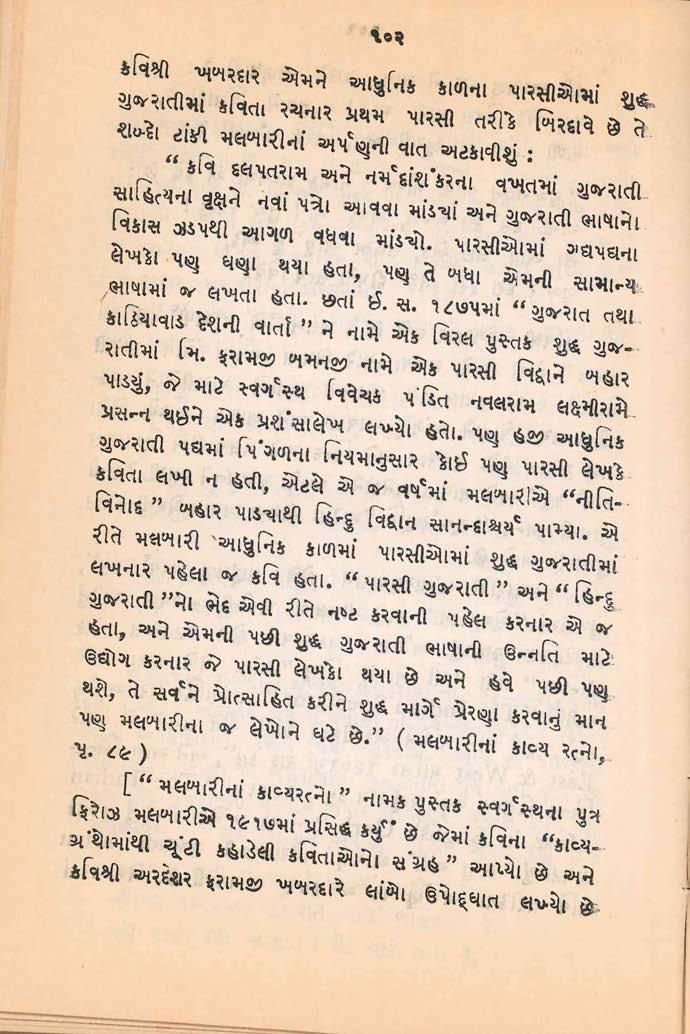 ૧૦૨
કવિશ્રી ખબરદાર એમને આધુનિક કાળના પારસીઓમાં શુદ્ધ
ગુજરાતીમાં કવિતા રચનાર પ્રથમ પારસી તરીકે બિરદાવે છે તે
શબ્દો ટાંકી મલબારીનાં અર્પણની વાત અટકાવીશું :
“ કવિ દલપતરામ અને નર્મદાશંકરના વખતમાં ગુજરાતી
સાહિત્યના વૃક્ષને નવાં પત્રો આવવા માંડ્યાં અને ગુજરાતી ભાષાનો
વિકાસ ઝડપથી આગળ વધવા માંડ્યો. પારસીઓમાં ગદ્યપદ્યના
લેખકો પણ ઘણા થયા હતા, પણ તે બધા એમની સામાન્ય
ભાષામાં જ લખતા હતા. છતાં ઈ. સ. ૧૮૭૫માં “ ગુજરાત તથા
કાઠિયાવાડ દેશની વાર્તા ” ને નામે એક વિરલ પુસ્તક શુદ્ધ ગુજ-
રાતીમાં મિ. ફરામજી બમનજી નામે એક પારસી વિદ્વાને બહાર
પાડ્યું, જે માટે સ્વર્ગસ્થ વિવેચક પંડિત નવલરામ લક્ષ્મીરામે
પ્રસન્ન થઈને એક પ્રશંસાલેખ લખ્યો હતો. પણ હજી આધુનિક
ગુજરાતી પદ્યમાં પિંગળના નિયમાનુસાર કોઈ પણ પારસી લેખકે
કવિતા લખી ન હતી, એટલે એ જ વર્ષમાં મલબારીએ “નીતિ-
વિનોદ ” બહાર પાડ્યાથી હિન્દુ વિદ્વાન સાનન્દાશ્ચર્ય પામ્યા. એ
રીતે મલબારી આધુનિક કાળમાં પારસીઓમાં શુદ્ધ ગુજરાતીમાં
લખનાર પહેલા જ કવિ હતા. “ પારસી ગુજરાતી ” અને “ હિન્દુ
ગુજરાતી ”નો ભેદ એવી રીતે નષ્ટ કરવાની પહેલ કરનાર એ જ
હતા, અને એમની પછી શુદ્ધ ગુજરાતી ભાષાની ઉન્નતિ માટે
ઉદ્યોગ કરનાર જે પારસી લેખકો થયા છે અને હવે પછી પણ
થશે, તે સર્વને પ્રોત્સાહિત કરીને શુદ્ધ માર્ગે પ્રેરણા કરવાનું માન
પણ મલબારીના જ લેખોને ઘટે છે.” ( મલબારીનાં કાવ્ય રત્નો,
પૃ. ૮૯ )
[ “ મલબારીનાં કાવ્યરત્નો ” નામક પુસ્તક સ્વર્ગસ્થના પુત્ર
ફિરોઝ મલબારીએ ૧૯૧૭માં પ્રસિદ્ધ કર્યું છે જેમાં કવિના “કાવ્ય-
ગ્રંથોમાંથી ચૂંટી કહાડેલી કવિતાઓનો સંગ્રહ ” આપ્યો છે અને
કવિશ્રી અરદેશર ફરામજી ખબરદારે લાંબો ઉપોદ્‌ઘાત લખ્યો છે